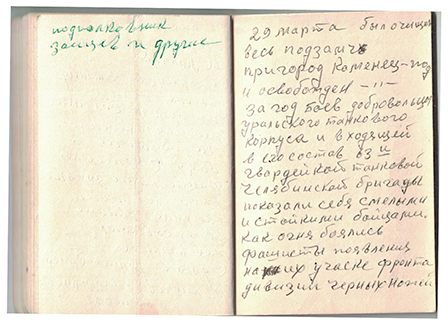 подполковник
зайцев и другие
29 марта был очищен
весь подзамч
пригород Каменец-под
и освобожден —"—
за год боев добровольцы
уральского танкового
корпуса и входящей
в его состав 63 й
гвардейской танковой
Челябинской бригады
показали себя смелыми
и стойкими бойцами.
как огня боялись
фашисты появления
на их учаске фронта
дивизии черных ножей